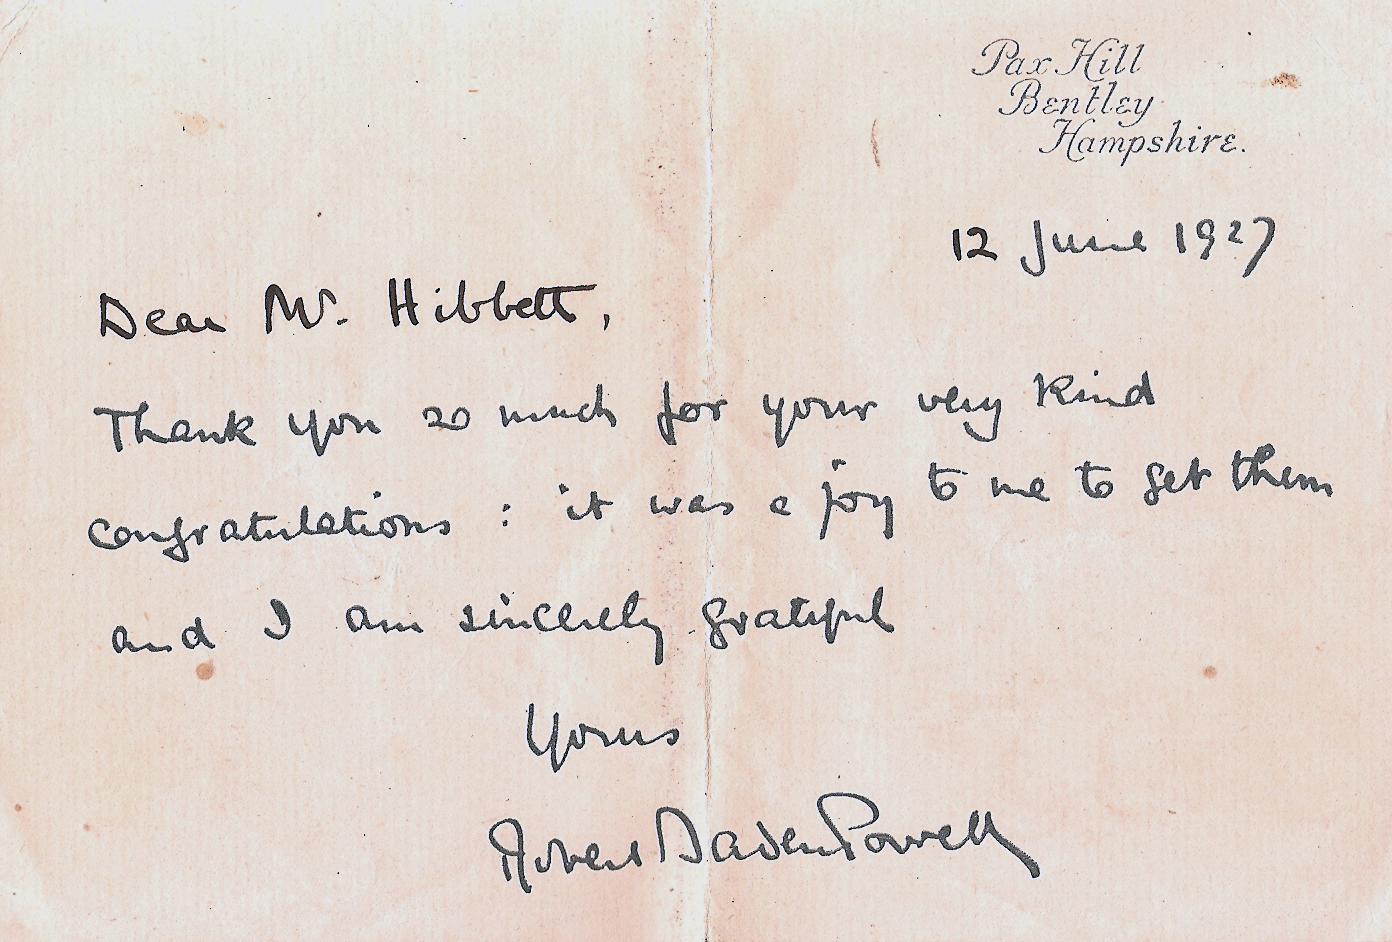 Pax Hill
Bentley
Hampshire.
12 June 1927
Dear Mr. Hibbett,
Thank you so much for your very kind
congratulations : it was a joy to me to get them
and I am sincerely grateful
Yours
Robert Baden Powell